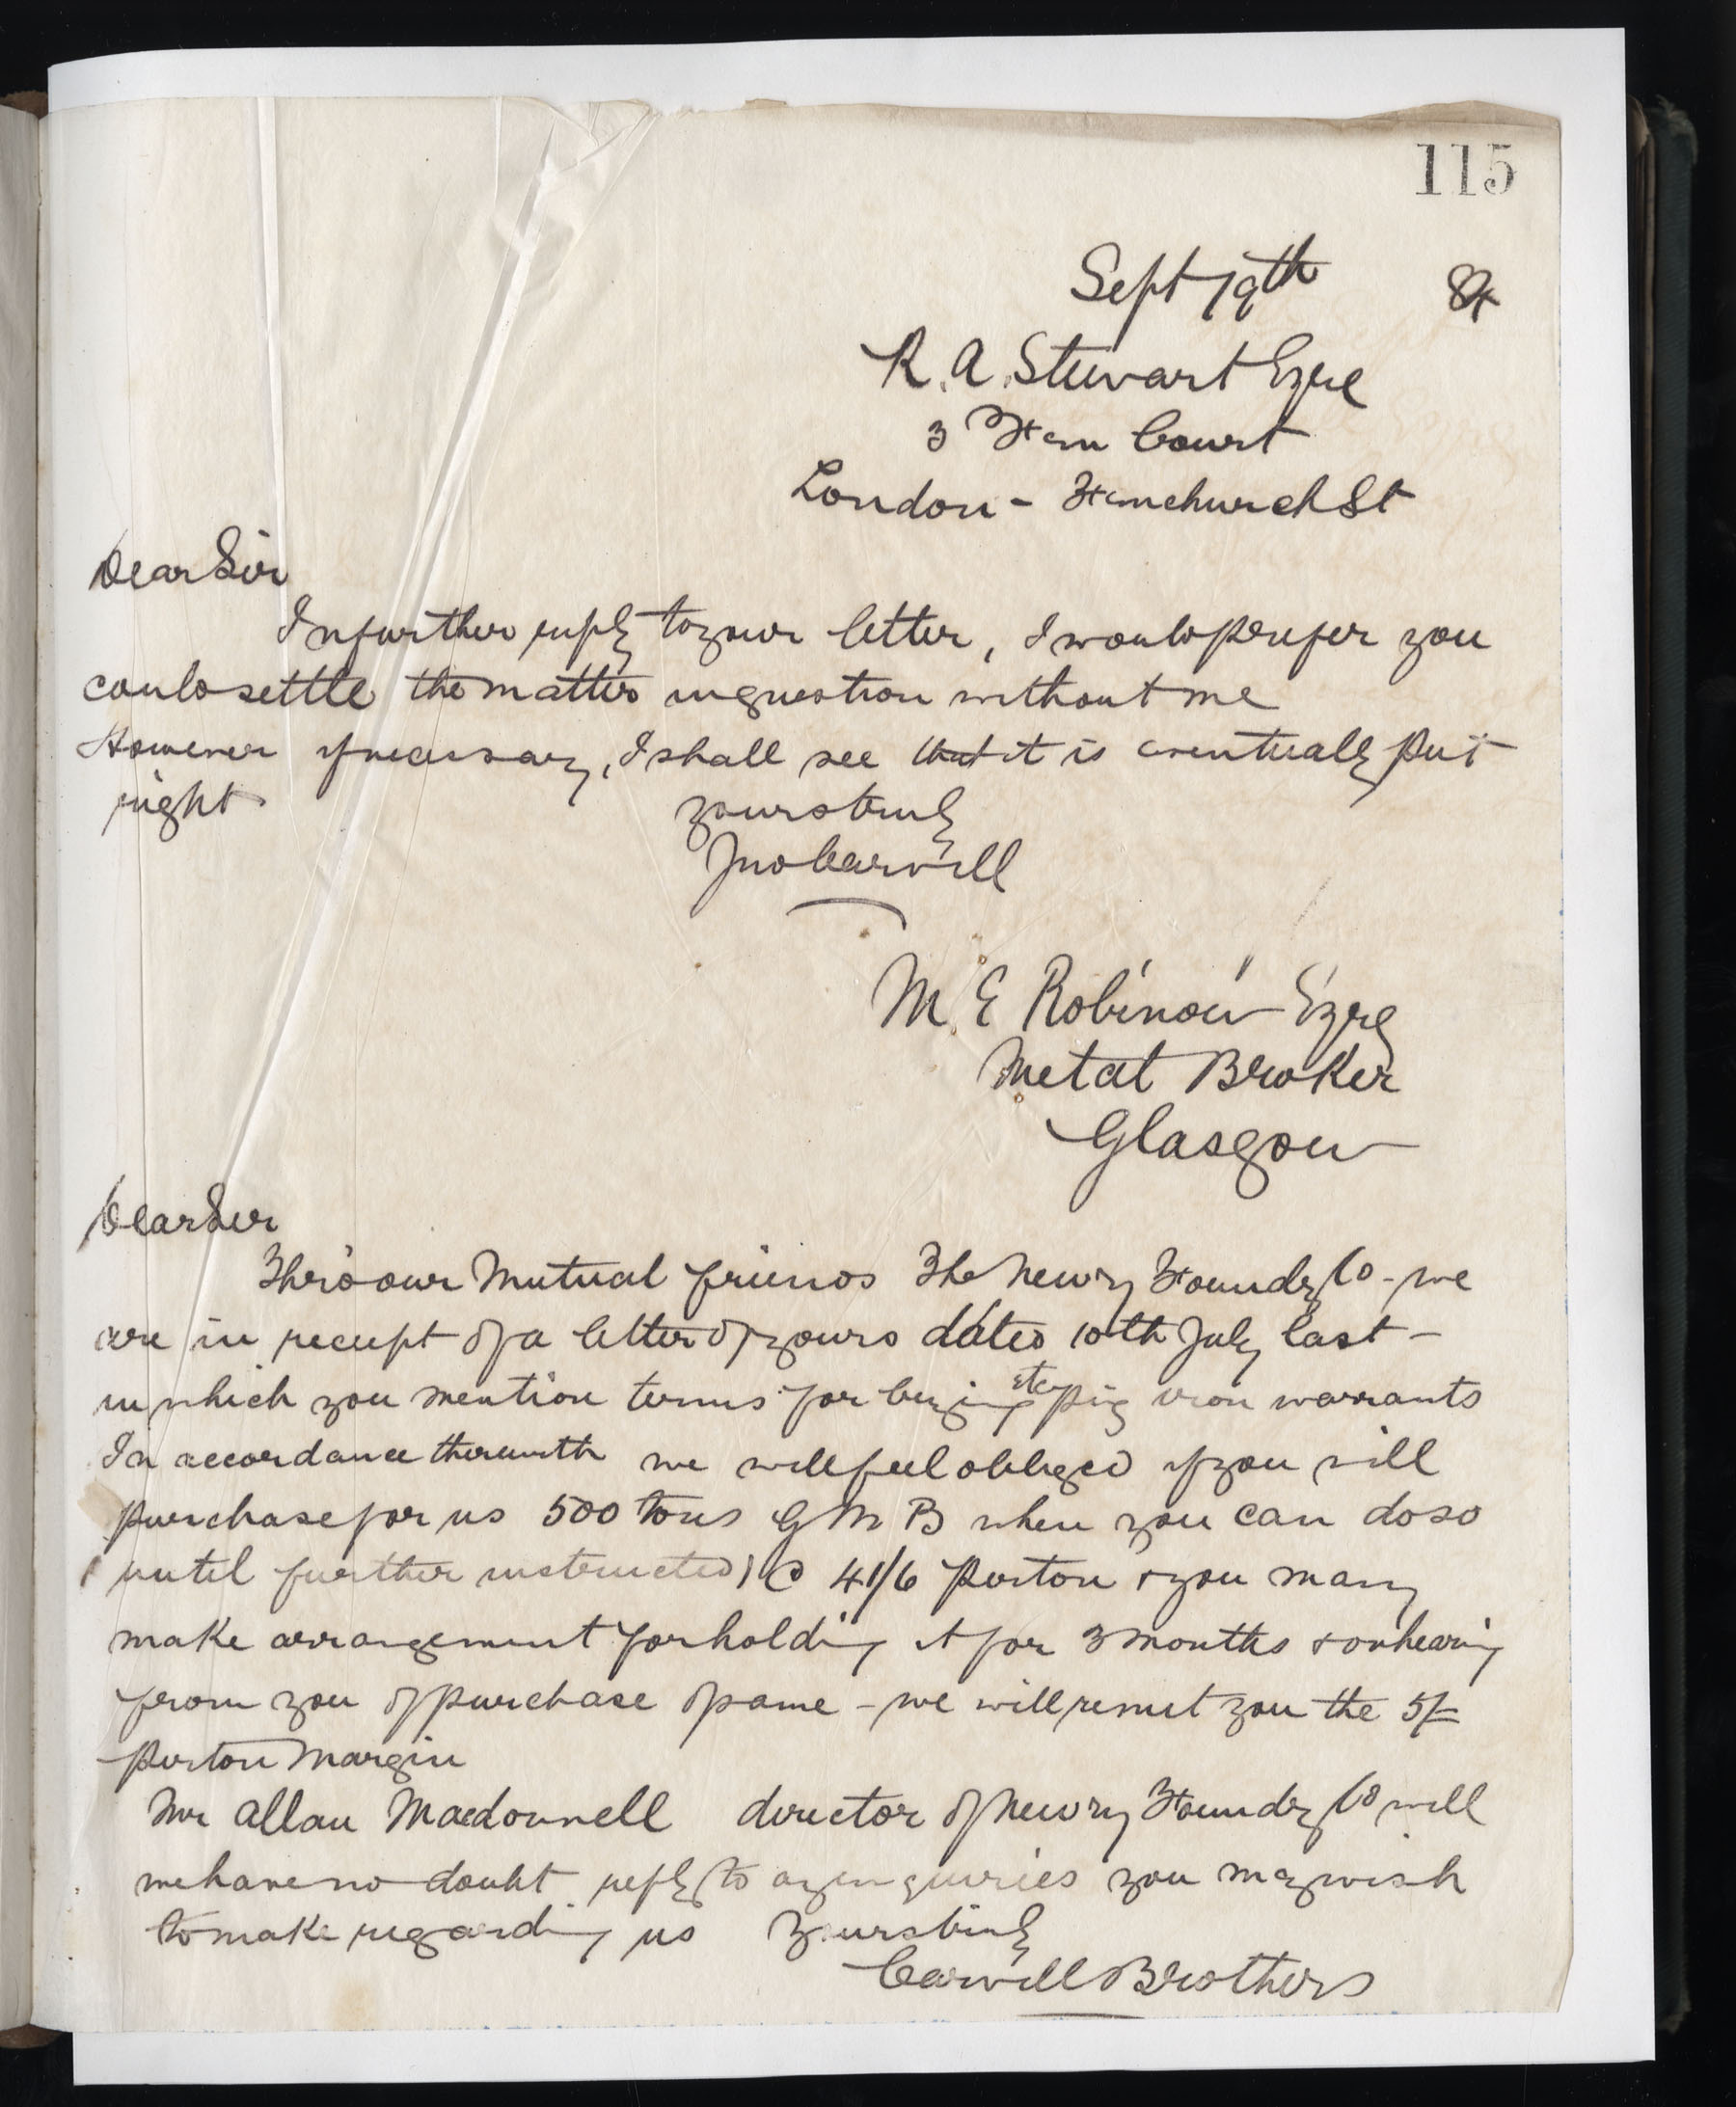 115
Sept 19th 84
R. A. Stewart Esqre
3 Fen Court
London - Fenchurch St
Dear Sir
In further reply to your letter, I would prefer you
could settle the matter in question without me
However if necessary, I shall see that it is eventually put
right
yours truly
Jno Carvill
M. E Robinow Esqre
Metal Broker
Glasgow
Dear Sir
Thro our Mutual friends The Newry Foundry Co - we
are in receipt of a letter of yours dated 10th July last -
in which you mention terms for buying etc pig iron warrants
In accordance therewith we will feel obliged if you will
purchase for us 500 tons G M B when you can do so
(until further instructed) @ 41/6 per ton & you may
make arrangement for holding it for 3 months & on hearing
from you of purchase of same - we will remit you the 5/-
per ton Margin
Mr Allan Macdonnell director of Newry Foundry Co will
we have no doubt reply to any enquiries you may wish
to make regarding us Yours truly
Carvill Brothers